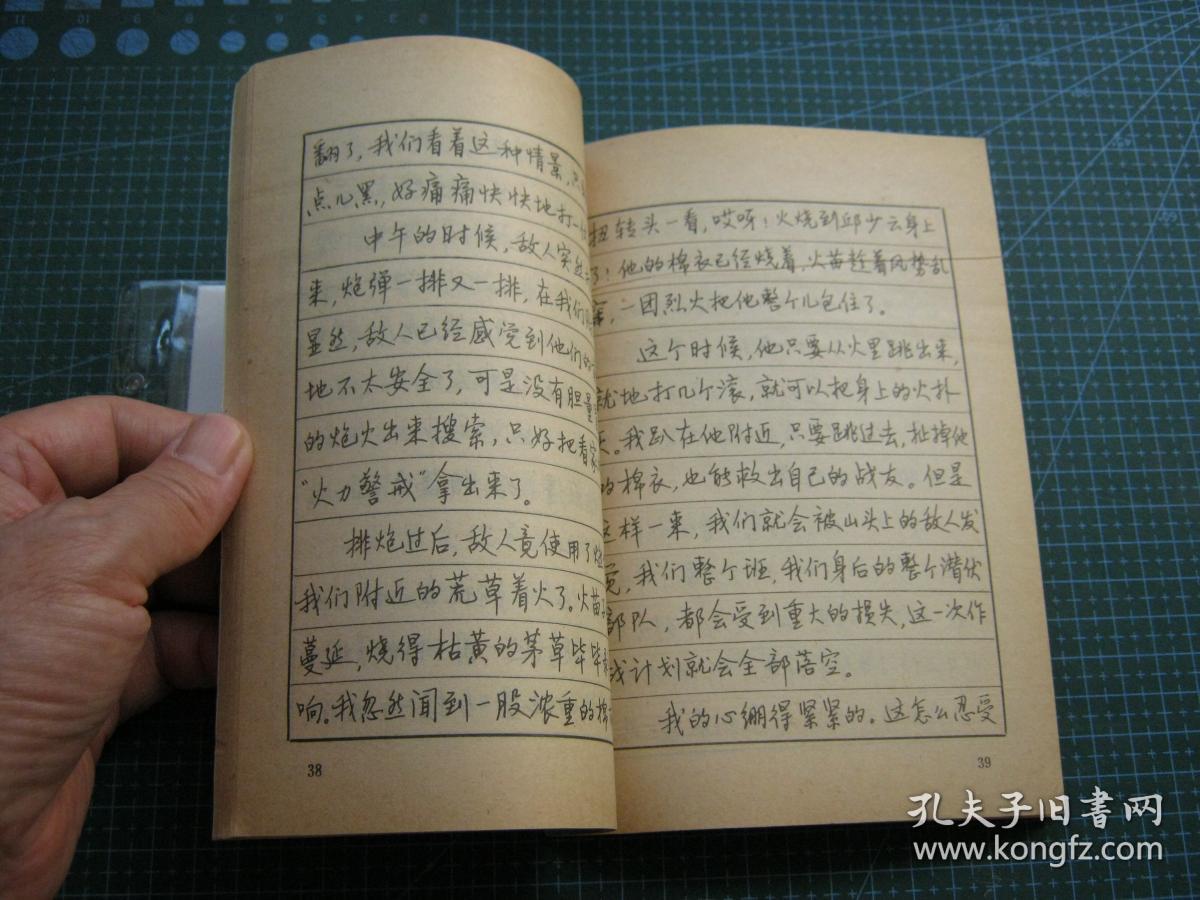 翻了，我们看着这种情景，
点儿黑，好痛痛快快地打一
中午的时候，敌人突然
来，炮弹一排又一排，在我们
显然，敌人已经感觉到他们的
地不太安全了，可是没有胆量
的炮火出来搜索，只好把看家
“火力警戒”拿出来了。
排炮过后，敌人竟使用了
我们附近的荒草着火了。火苗
蔓延，烧得枯黄的茅草毕毕
响。我忽然闻到一股浓重的棉
38
扭转头一看，哎呀！火烧到邱少云身上
了！他的棉衣已经烧着，火苗趁着风势乱
窜，一团烈火把他整个儿包住了。
这个时候，他只要从火里跳出来，
就地打几个滚，就可以把身上的火扑
。我趴在他附近，只要跳过去，扯掉他
的棉衣，也能救出自己的战友。但是
这样一来，我们就会被山头上的敌人发
觉，我们整个班，我们身后的整个潜伏
部队，都会受到重大的损失，这一次作
战计划就会全部落空。
我的心绷得紧紧的。这怎么忍受
39
孔夫子旧书网
www.kongfz.com